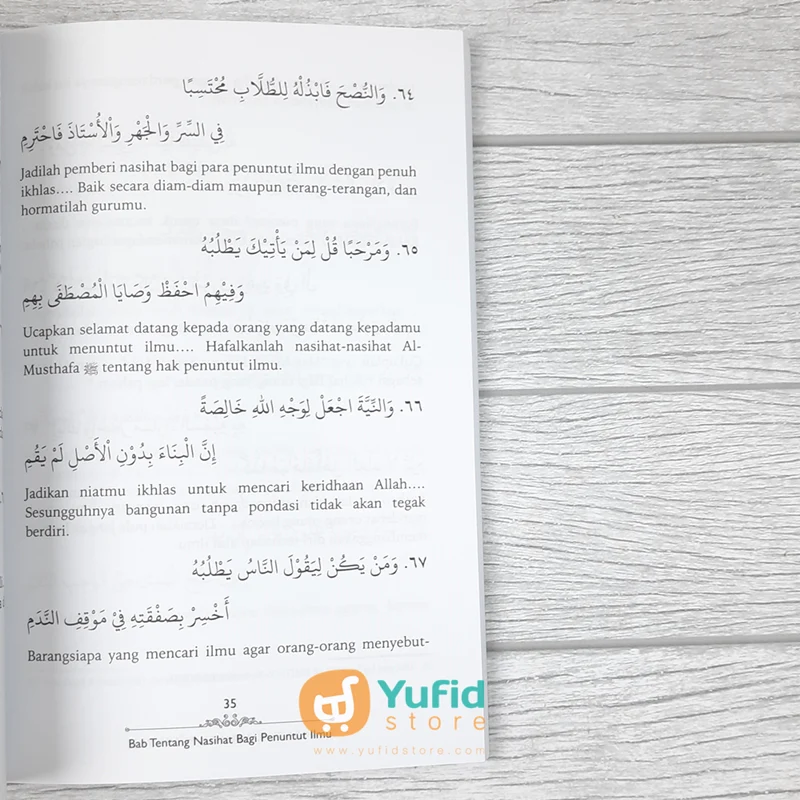 ٦٤. وَالنُّصْحَ فَابْذُلْهُ لِلطُّلَّابِ مُحْتَسِبًا
فِي السِّرِّ وَالْجَهْرِ وَالْأُسْتَاذَ فَاحْتَرِمِ
Jadilah pemberi nasihat bagi para penuntut ilmu dengan penuh
ikhlas.... Baik secara diam-diam maupun terang-terangan, dan
hormatilah gurumu.
٦٥. وَمَرْحَبًا قُلْ لِمَنْ يَأْتِيْكَ يَطْلُبُهُ
وَفِيْهِمُ احْفَظْ وَصَايَا الْمُصْطَفَى بِهِمِ
Ucapkan selamat datang kepada orang yang datang kepadamu
untuk menuntut ilmu.... Hafalkanlah nasihat-nasihat Al-
Musthafa ﷺ tentang hak penuntut ilmu.
٦٦. وَالنِّيَّةَ اجْعَلْ لِوَجْهِ اللهِ خَالِصَةً
إِنَّ الْبِنَاءَ بِدُوْنِ الْأَصْلِ لَمْ يَقُمِ
Jadikan niatmu ikhlas untuk mencari keridhaan Allah....
Sesungguhnya bangunan tanpa pondasi tidak akan tegak
berdiri.
٦٧. وَمَنْ يَكُنْ لِيَقُوْلَ النَّاسُ يَطْلُبُهُ
أَخْسِرْ بِصَفْقَتِهِ فِيْ مَوْقِفِ النَّدَمِ
Barangsiapa yang mencari ilmu agar orang-orang menyebut-
35
Bab Tentang Nasihat Bagi Penuntut Ilmu
Yufid
store
www.yufidstore.com